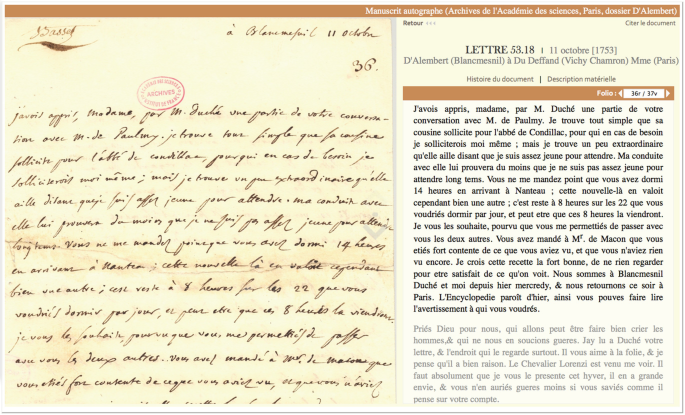 Manuscrit autographe (Archives de l'Académie des sciences, Paris, dossier D'Alembert)
Basset
à Blancmesnil 11 octobre
36.
ARCHIVES
j'avois appris, madame, par M. Duché une partie de votre conversa-
tion avec M. de Paulmy. je trouve tout simple que sa cousine
sollicite pour l'abbé de condillac, pour qui en cas de besoin je
solliciterois moi même ; mais je trouve un peu extraordinaire qu'elle
aille disant que je suis assez jeune pour attendre. ma conduite avec
elle lui prouvera du moins que je ne suis pas assez jeune pour attendre
long tems. Vous ne me mandez point que vous avez dormi 14 heures
en arrivant à Nanteau ; cette nouvelle là en valoit cependant
bien une autre ; c'est reste à 8 heures sur les 22 que vous
voudriés dormir par jour, et peut etre que ces 8 heures la viendront.
je vous les souhaite, pourvu que vous me permettiés de passer
avec vous les deux autres. vous avez mandé à Mr. de macon que
vous etiés fort contente de ce que vous aviez vu, et que vous n'aviez
Retour
Citer le document
LETTRE 53.18 | 11 octobre [1753]
D'Alembert (Blancmesnil) à Du Deffand (Vichy Chamron) Mme (Paris)
Histoire du document | Description matérielle
Folio : 36r / 37v
J'avois appris, madame, par M. Duché une partie de votre
conversation avec M. de Paulmy. Je trouve tout simple que sa
cousine sollicite pour l'abbé de Condillac, pour qui en cas de besoin
je solliciterois moi même ; mais je trouve un peu extraordinaire
qu'elle aille disant que je suis assez jeune pour attendre. Ma conduite
avec elle lui prouvera du moins que je ne suis pas assez jeune pour
attendre long tems. Vous ne me mandez point que vous avez dormi
14 heures en arrivant à Nanteau ; cette nouvelle-là en valoit
cependant bien une autre ; c'est reste à 8 heures sur les 22 que vous
voudriés dormir par jour, et peut etre que ces 8 heures la viendront.
Je vous les souhaite, pourvu que vous me permettiés de passer avec
vous les deux autres. Vous avez mandé à Mr. de Macon que vous
etiés fort contente de ce que vous aviez vu, et que vous n'aviez rien
vu encore. Je crois cette recette la fort bonne, de ne rien regarder
pour etre satisfait de ce qu'on voit. Nous sommes à Blancmesnil
Duché et moi depuis hier mercredy, & nous retournons ce soir à
Paris. L'Encyclopedie paroît d'hier, ainsi vous pouves faire lire
l'avertissement à qui vous voudrés.
Priés Dieu pour nous, qui allons peut être faire bien crier les
hommes,& qui ne nous en soucions gueres. Jay lu a Duché votre
lettre, & l'endroit qui le regarde surtout. Il vous aime à la folie, & je
pense qu'il a bien raison. Le Chevalier Lorenzi est venu me voir. Il
faut absolument que je vous le presente cet hyver, il en a grande
envie, & vous n'en auriés gueres moins si vous saviés comme il
pense sur votre compte.